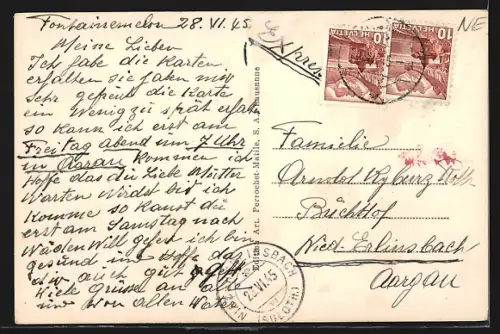 Fontainemelon 28. VI. 45
Meine Lieben
Ich habe die Karten
erhalten sie haben mich
sehr gefreut die Karte
ein wenig zu spät erhalten
so kann ich erst am
Freitag abend um 7 Uhr
in Aarau kommen ich
Hoffe das du Liebe Mutter
Warten Wirdst bis ich
Komme so kanst du
erst am Samstag nach
Wädenswill gehen ich bin
gesund und hoffe das
auch gut geht
Viele Grüsse an alle
und von allen
Edition Art. Perrochet-Matile, S. A., Lausanne
Xpress
NE
HELVETIA 10
HELVETIA 10
Familie
Arnold Kyburz Roth
Büchhof
Nied. Erlinsbach
Aargau
NIEDERERLINSBACH
29.VI.45
(SOLOTH.)